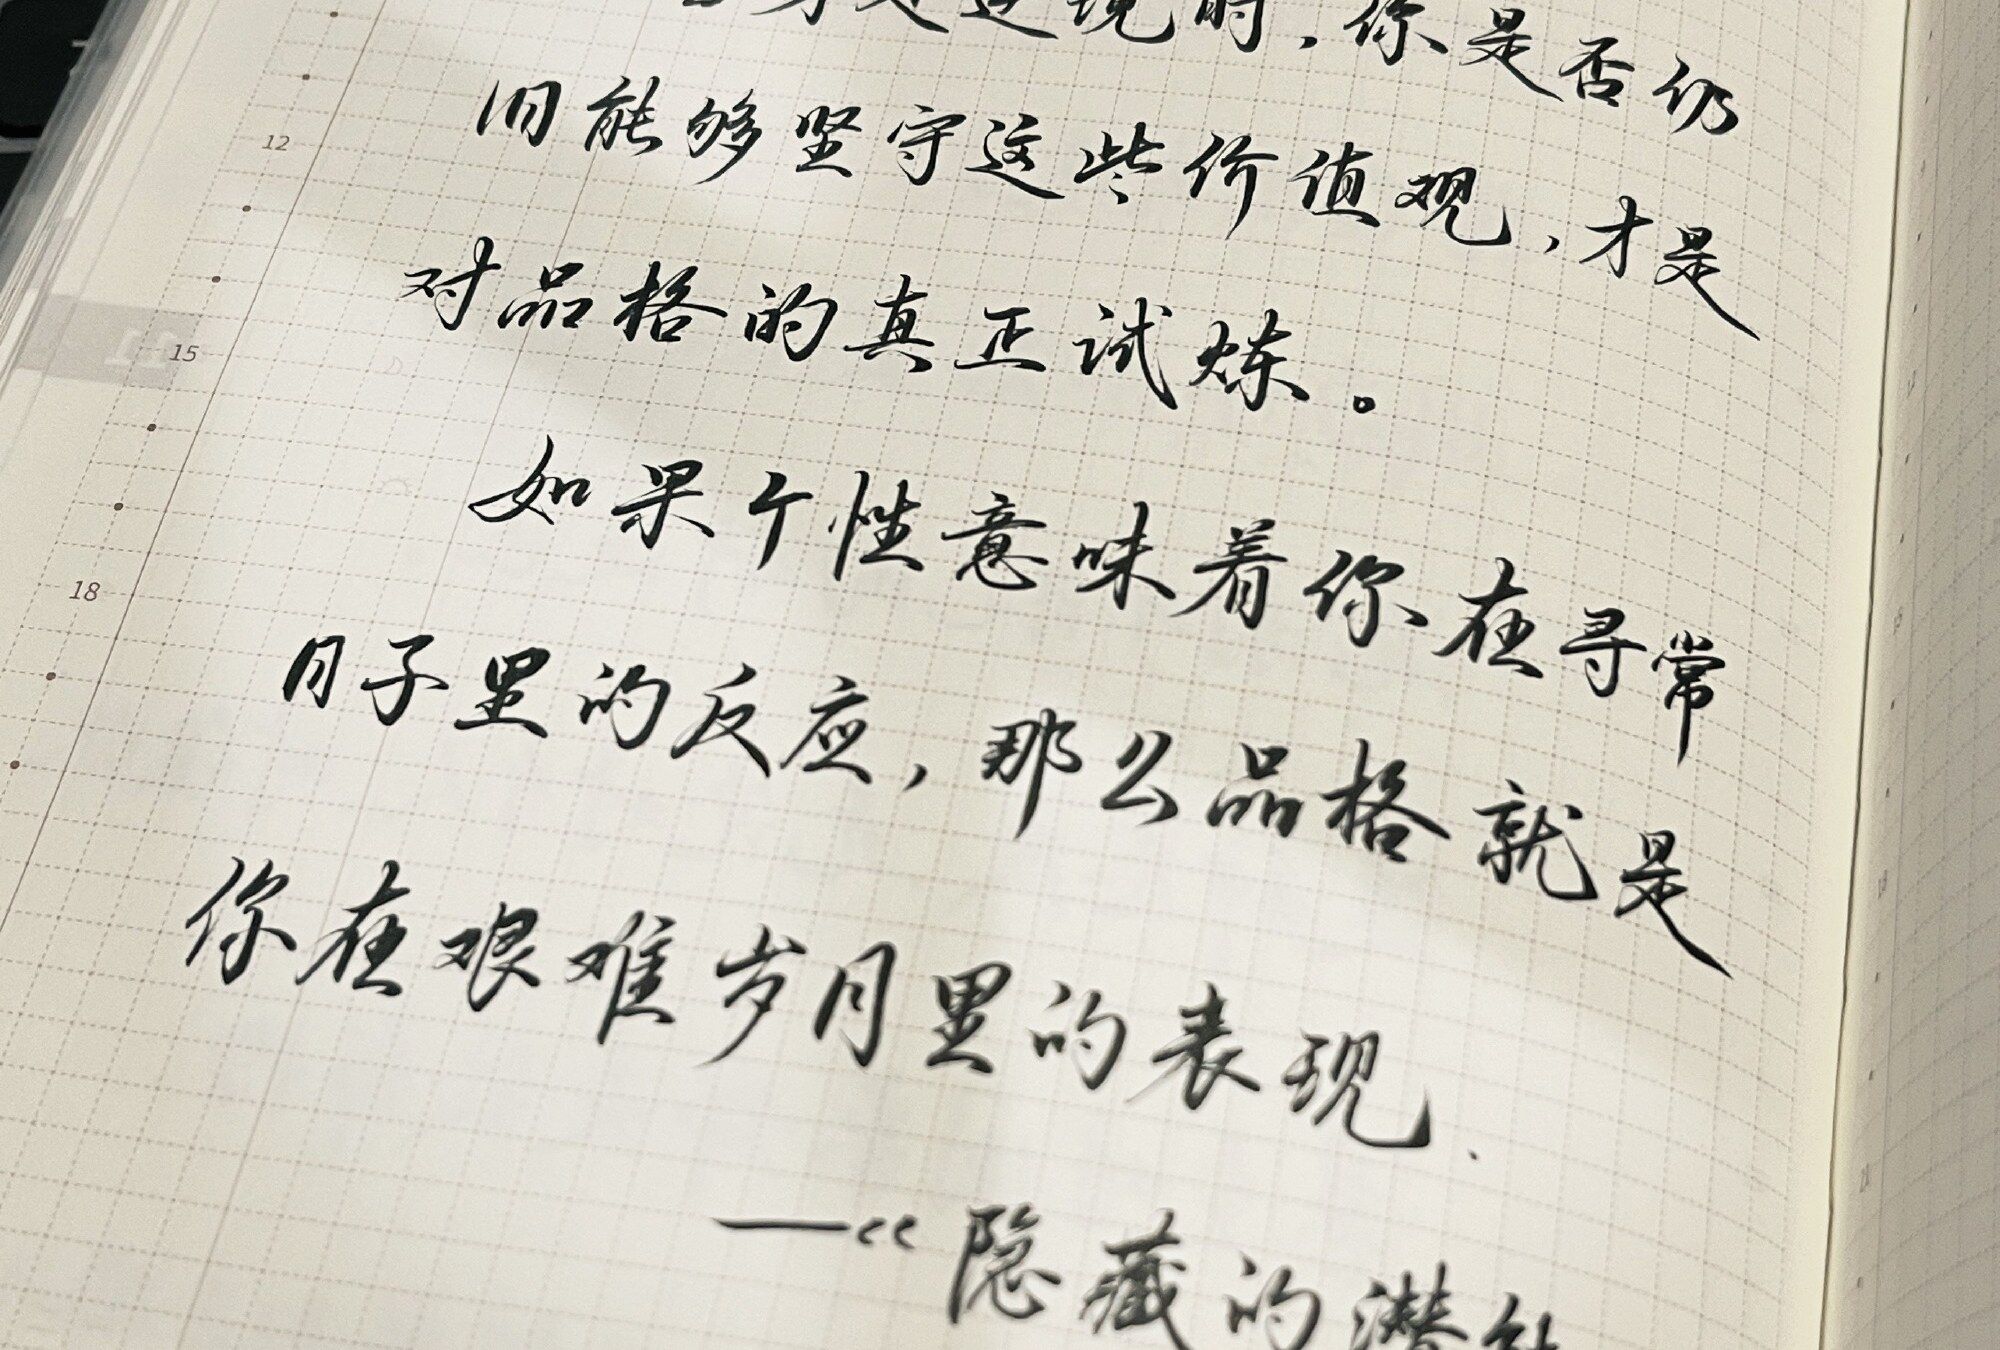 时，你是否仍
旧能够坚守这些价值观，才是
12
对品格的真正试炼。
15
如果个性意味着你在寻常
18
日子里的反应，那么品格就是
你在艰难岁月里的表现.
—“隐藏的潜能